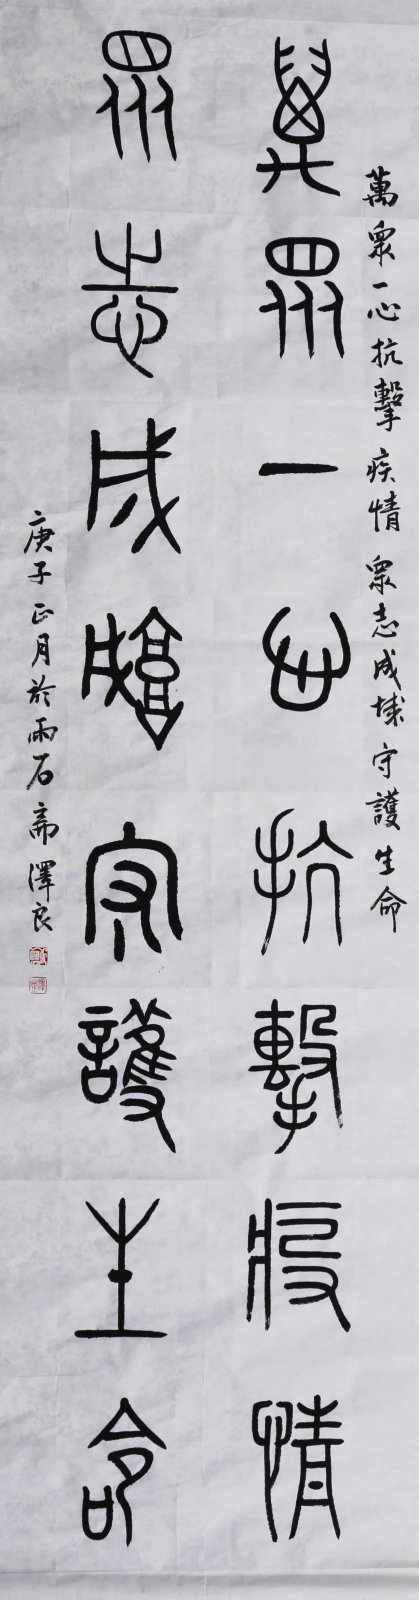 萬衆一心抗擊疫情 衆志成城守護生命
萬眾一心抗擊疫情
眾志成城守護生命
庚子正月於雨石齋澤良